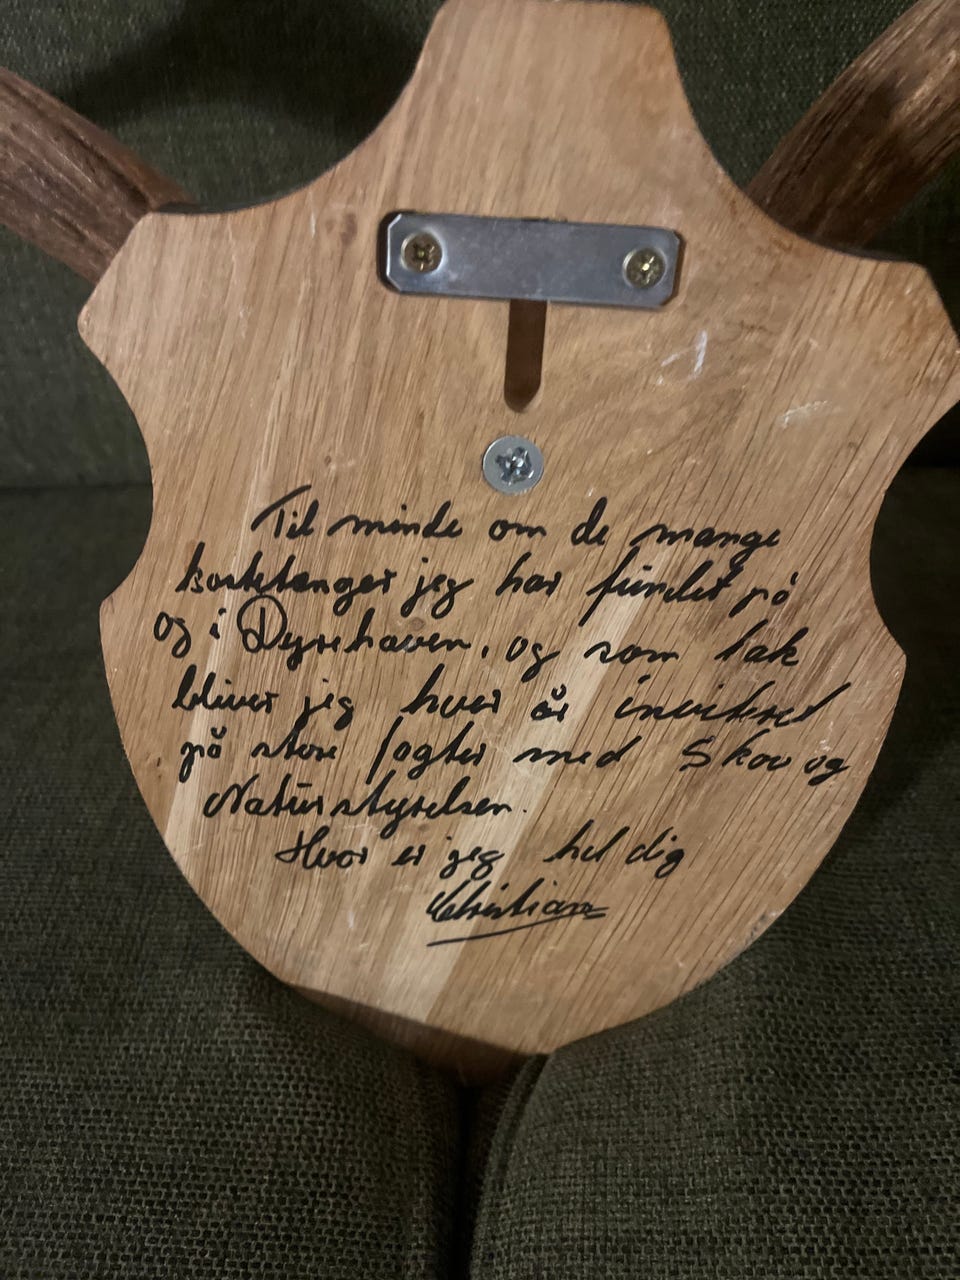 Til minde om de mange
kastestænger jeg har fundet på
og i Dyrehaven, og som tak
bliver jeg hver år inviteret
på store jagter med Skov og
Naturstyrelsen.
Hvor er jeg hel dig
Christian